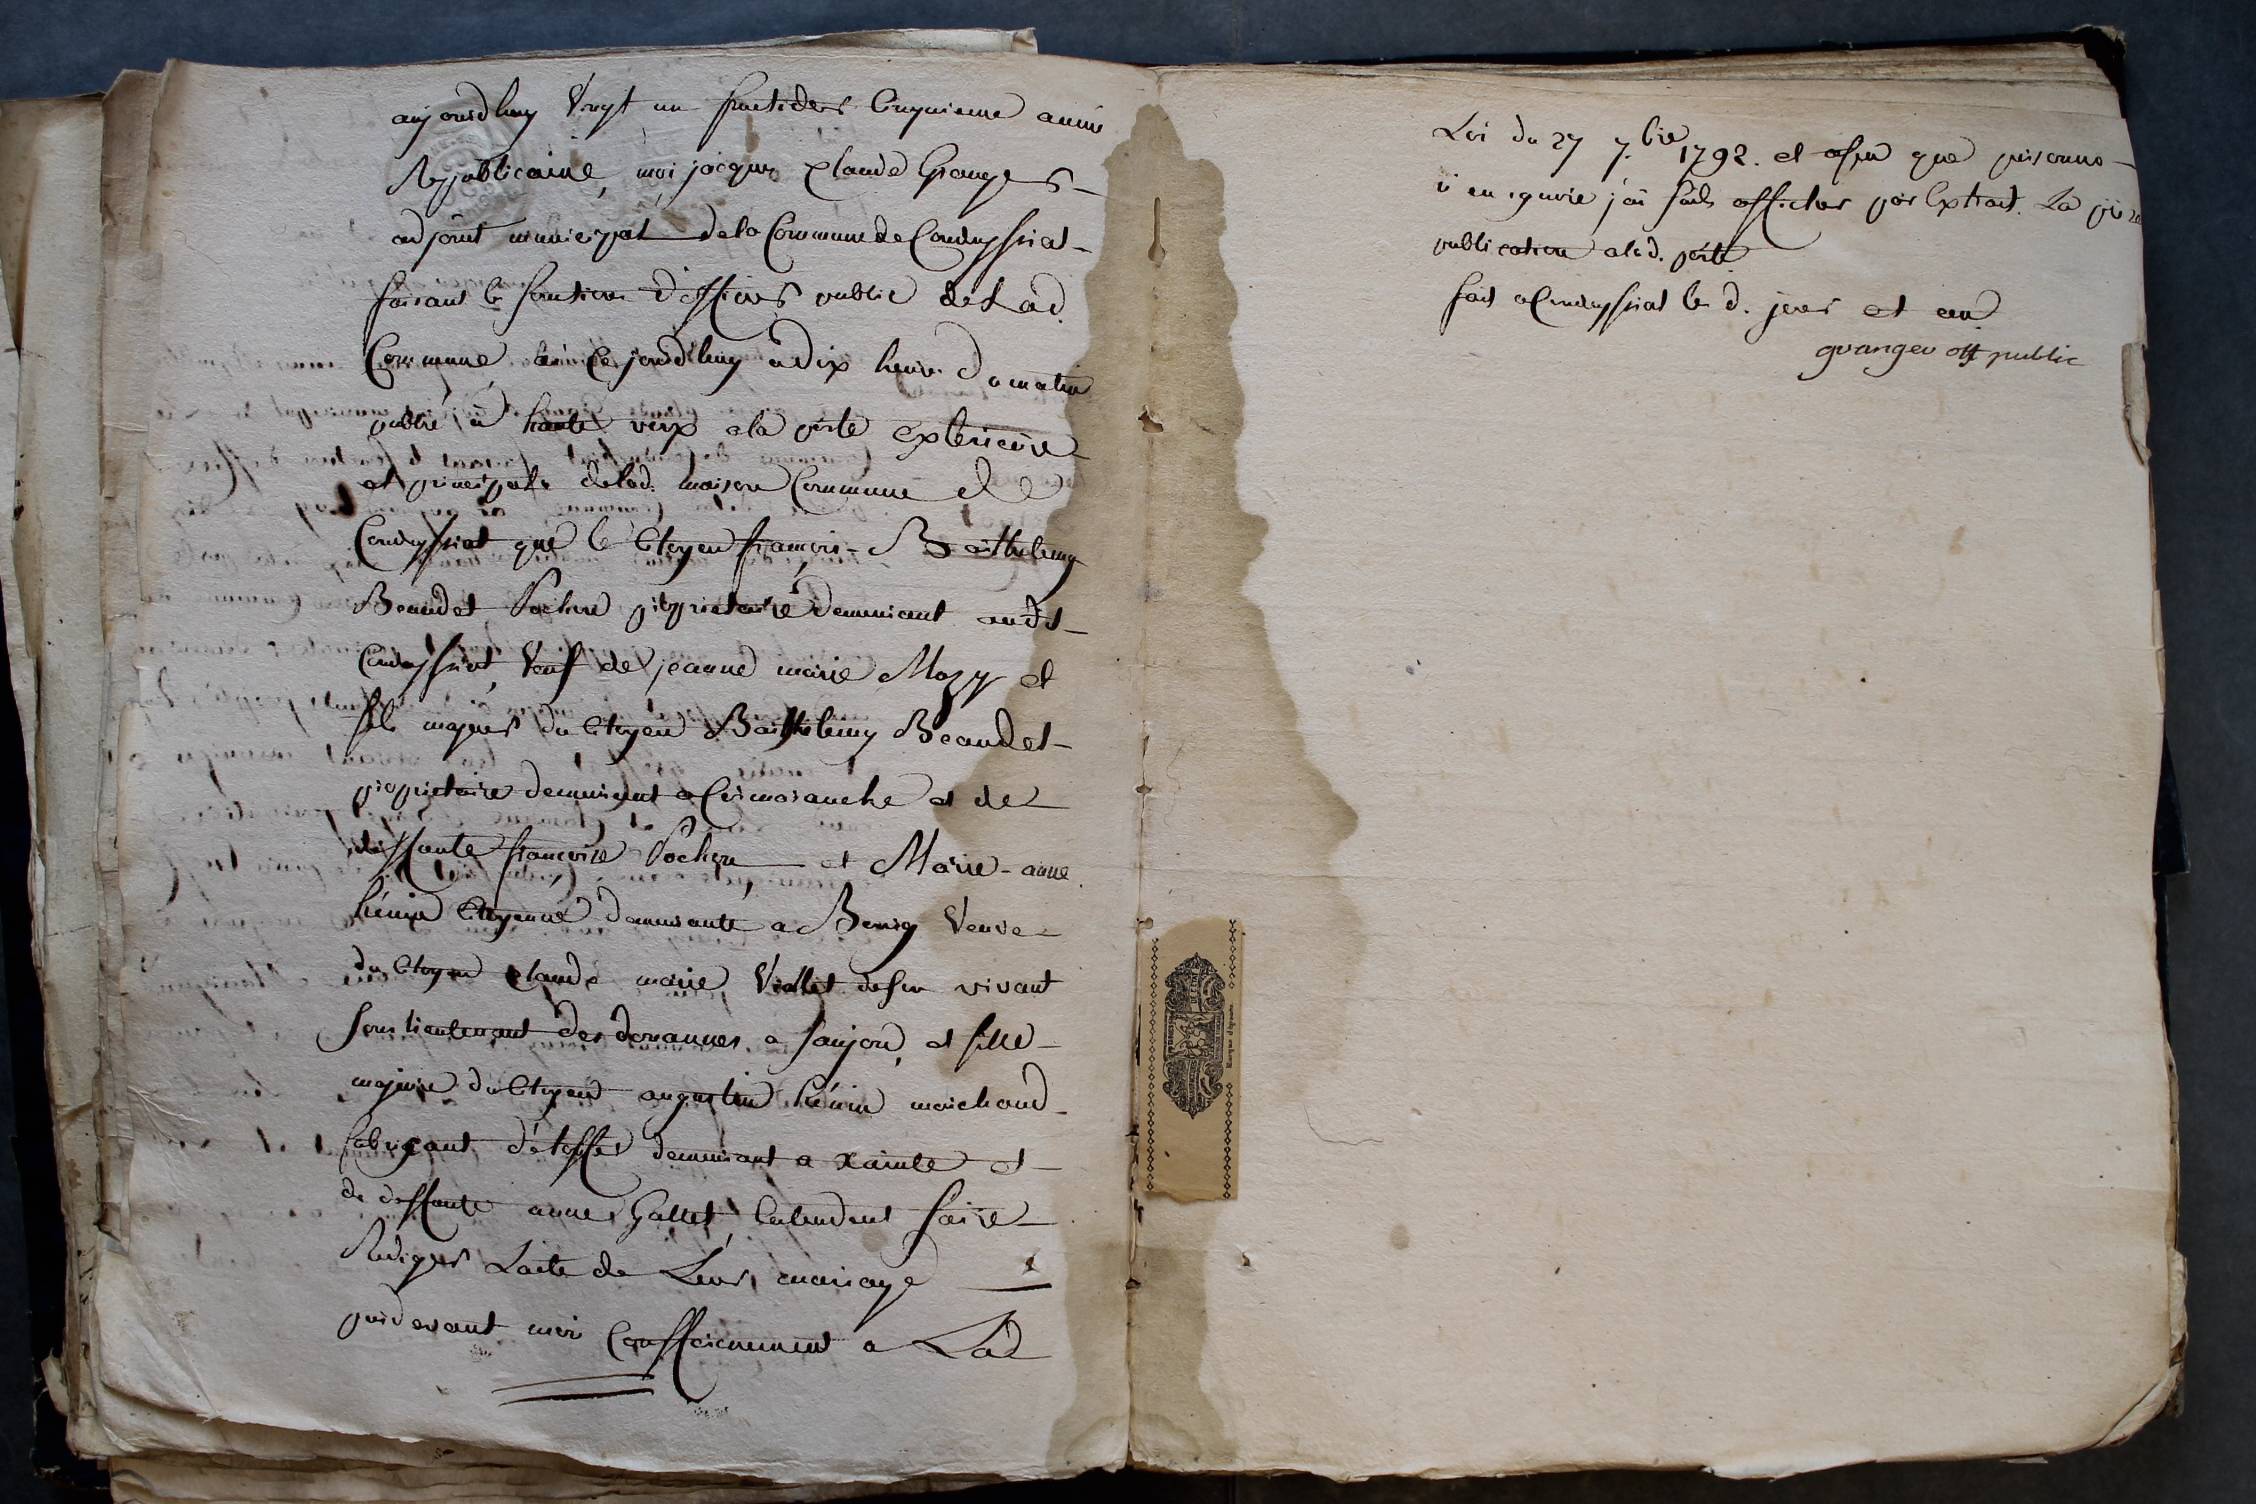 aujourdhuy Vingt un fructidor Cinquieme année
Republicaine, moi jacques claude Granger
adjoint municipal de la Commune de Condeyssiat
faisant les fonctions d'officier public de Lad.
Commune, ai cejourdhuy à dix heures du matin
publié à haute voix ala porte exterieure
et principale delad. maison Commune de
Condeyssiat que le Citoyen françois Barthelemy
Beaudet Pochon proprietaire demeurant audt
Condeyssiat, Veuf de jeanne marie Mozy et
fils majeur du Citoyen Barthelemy Beaudet
proprietaire demeurant a Cormoranche et de
deffunte françoise Pochon et Marie anne
hénin Citoyenne demeurante a Beney Veuve
du Citoyen claude marie Viallet de son vivant
sous lieutenant des douannes a saujon, et fille
majeure du Citoyen augustin hénin marchand
fabriquant d'étoffes demeurant a xainte et
de deffunte anne Gallet, Entendent faire
Rediger Lacte de Leur mariage
pardevant moi Conformement a La
Loi du 27 7.bre 1792. et afin que personne
n'en ignore j'ai fait afficher par Extrait. La
publication alad. porte
fait a Condeyssiat les d. jour et an
granger off public